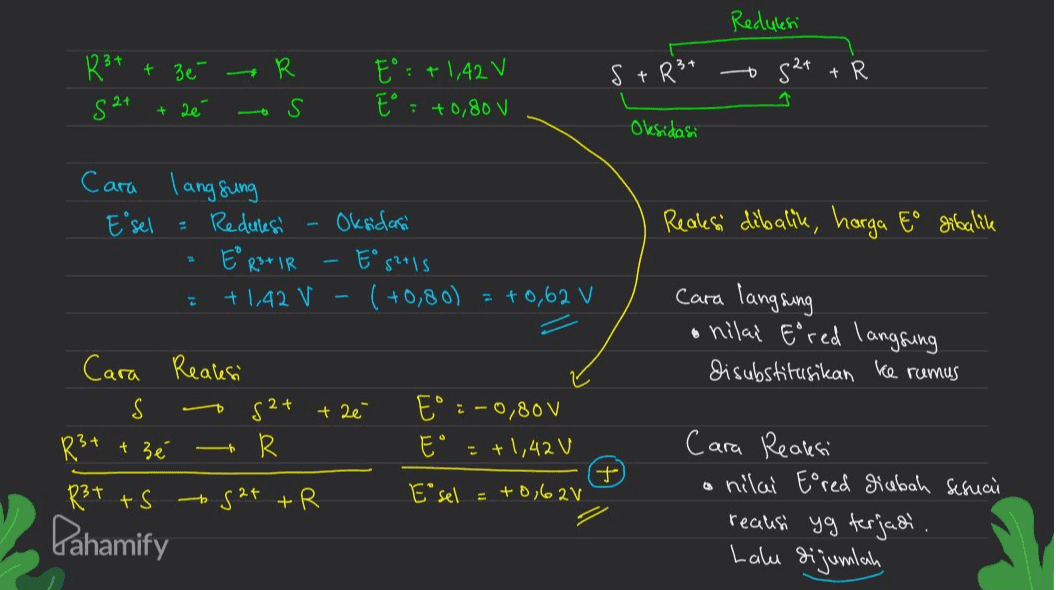 Reduksi
R³⁺ + 3e⁻ → R E° = +1,42 V
S + R³⁺ → S²⁺ + R
S²⁺ + 2e⁻ → S E° = +0,80 V
Oksidasi
Cara langsung
E°sel = Reduksi - Oksidasi
= E° R³⁺|R - E° S²⁺|S
= +1,42 V - (+0,80) = +0,62 V
Reaksi dibalik, harga E° dibalik
Cara langsung
• nilai E°red langsung
disubstitusikan ke rumus
Cara Reaksi
S → S²⁺ + 2e⁻ E° = -0,80 V
R³⁺ + 3e⁻ → R E° = +1,42 V
+
R³⁺ + S → S²⁺ + R E°sel = +0,62 V
Cara Reaksi
• nilai E°red diubah sesuai
reaksi yg terjadi.
Lalu dijumlah
Pahamify